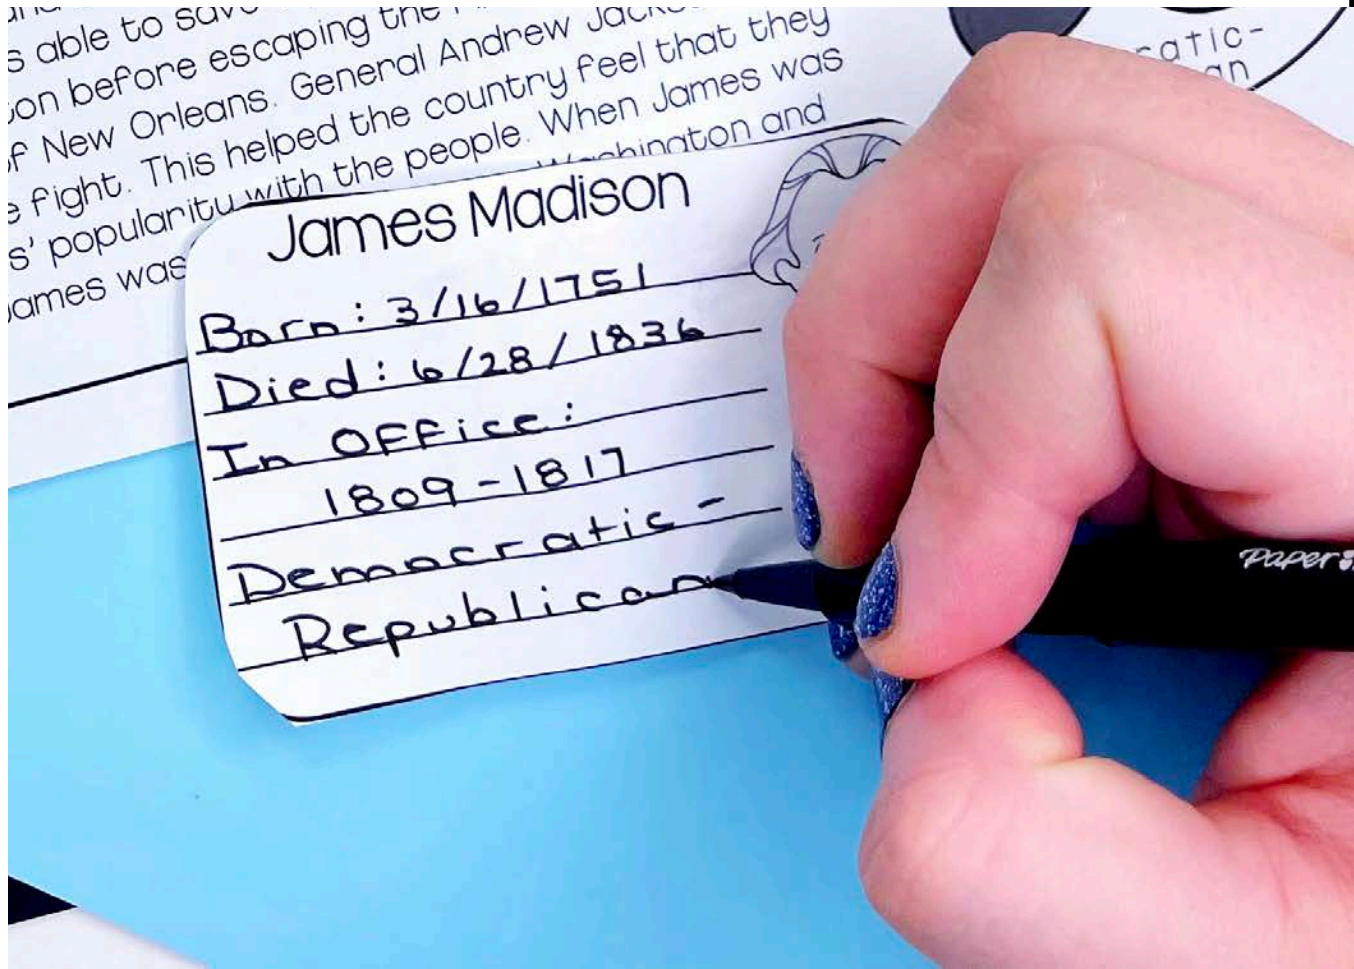 s able to save
on before escaping the
of New Orleans. General Andrew
fight. This helped the country feel that they
popularity with the people. When James was
ames was Washington and
James Madison
Born: 3/16/1751
Died: 6/28/1836
In Office:
1809-1817
Democratic-
Republican
ratic-
an
Paper